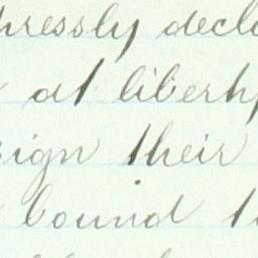 pressly decla
at liberty
sign their
bound t